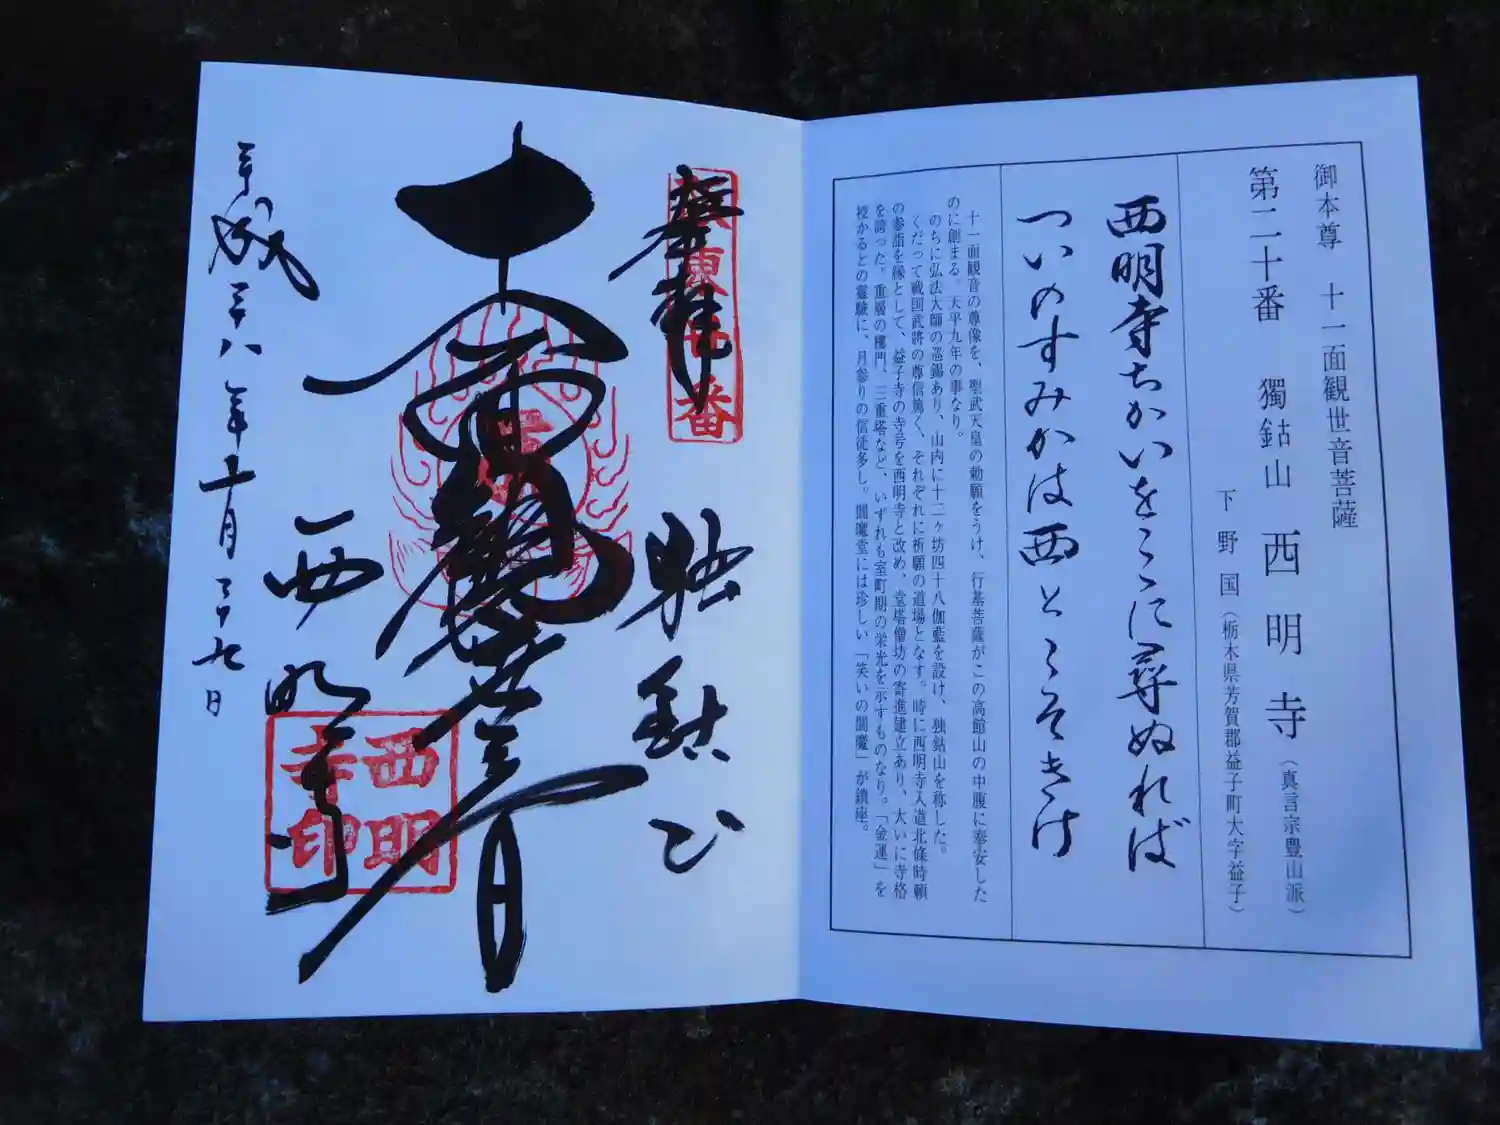 御本尊 十一面観世音菩薩
第二十番 獨鈷山 西明寺（真言宗豊山派）
下野国（栃木県芳賀郡益子町大字益子）
西明寺ちかいをこゝに尋ぬれば
ついのすみかは西とこそきけ
十一面観音の尊像を、聖武天皇の勅願をうけ、行基菩薩がこの高館山の中腹に奉安した
のに創まる。天平九年の事なり。
のちに弘法大師の巡錫あり、山内に十二ヶ坊四十八伽藍を設け、独鈷山を称した。
くだって戦国武将の尊信篤く、それぞれに祈願の道場となす。時に西明寺入道北條時頼
の参詣を縁として、益子寺の寺号を西明寺と改め、堂塔僧坊の寄進建立あり、大いに寺格
を誇った。重層の楼門、三重塔など、いずれも室町期の栄光を示すものなり。「金運」を
授かるとの霊験に、月参りの信徒多し。閻魔堂には珍しい「笑いの閻魔」が鎮座。
奉拝
坂東廿番
独鈷山
十一面観世音
西明寺
西明寺印
平成二八年十一月二十七日